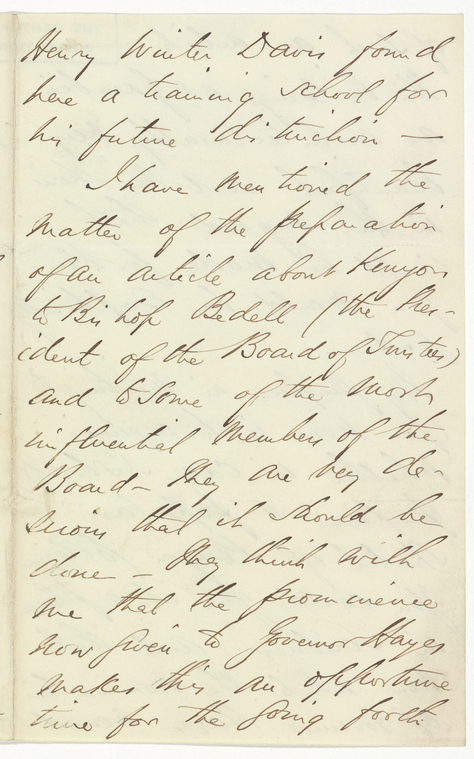 Henry Winter Davis found
here a training school for
his future distinction —
I have mentioned the
matter of the preparation
of an article about Kenyon
to Bishop Bedell (the Pres-
ident of the Board of Trustees)
and to some of the most
influential members of the
Board — They are very de-
sirous that it should be
done — They think with
me that the prominence
now given to Governor Hayes
makes this an opportune
time for the going forth